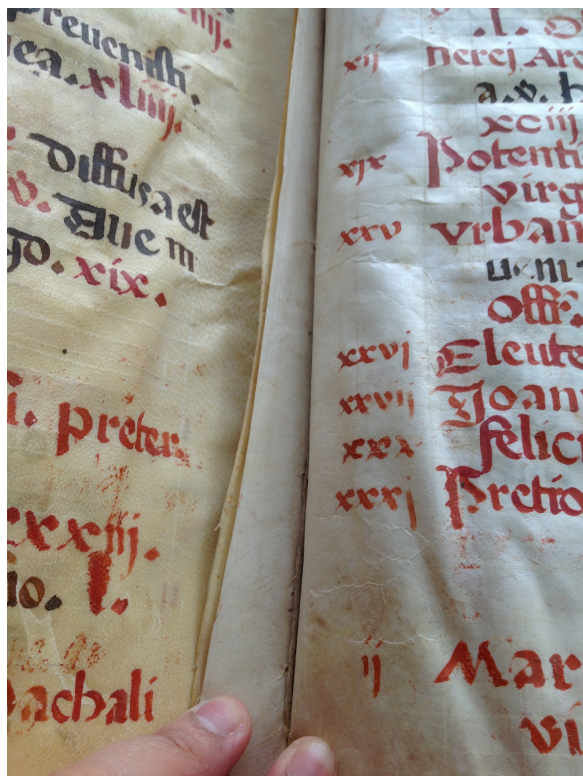 preuenisti
xliiij.
Diffusa est
Duc m
xix.
preter.
xxxiij.
l.
pachali
.l.
xij nerej Arc
a.v. h
xciiij
xix Potenti
virg
xxv vrban
uem
Off.
xxvi Eleute
xxvij Joann
xxx felici
xxxj Pretio
ij Mar
vi